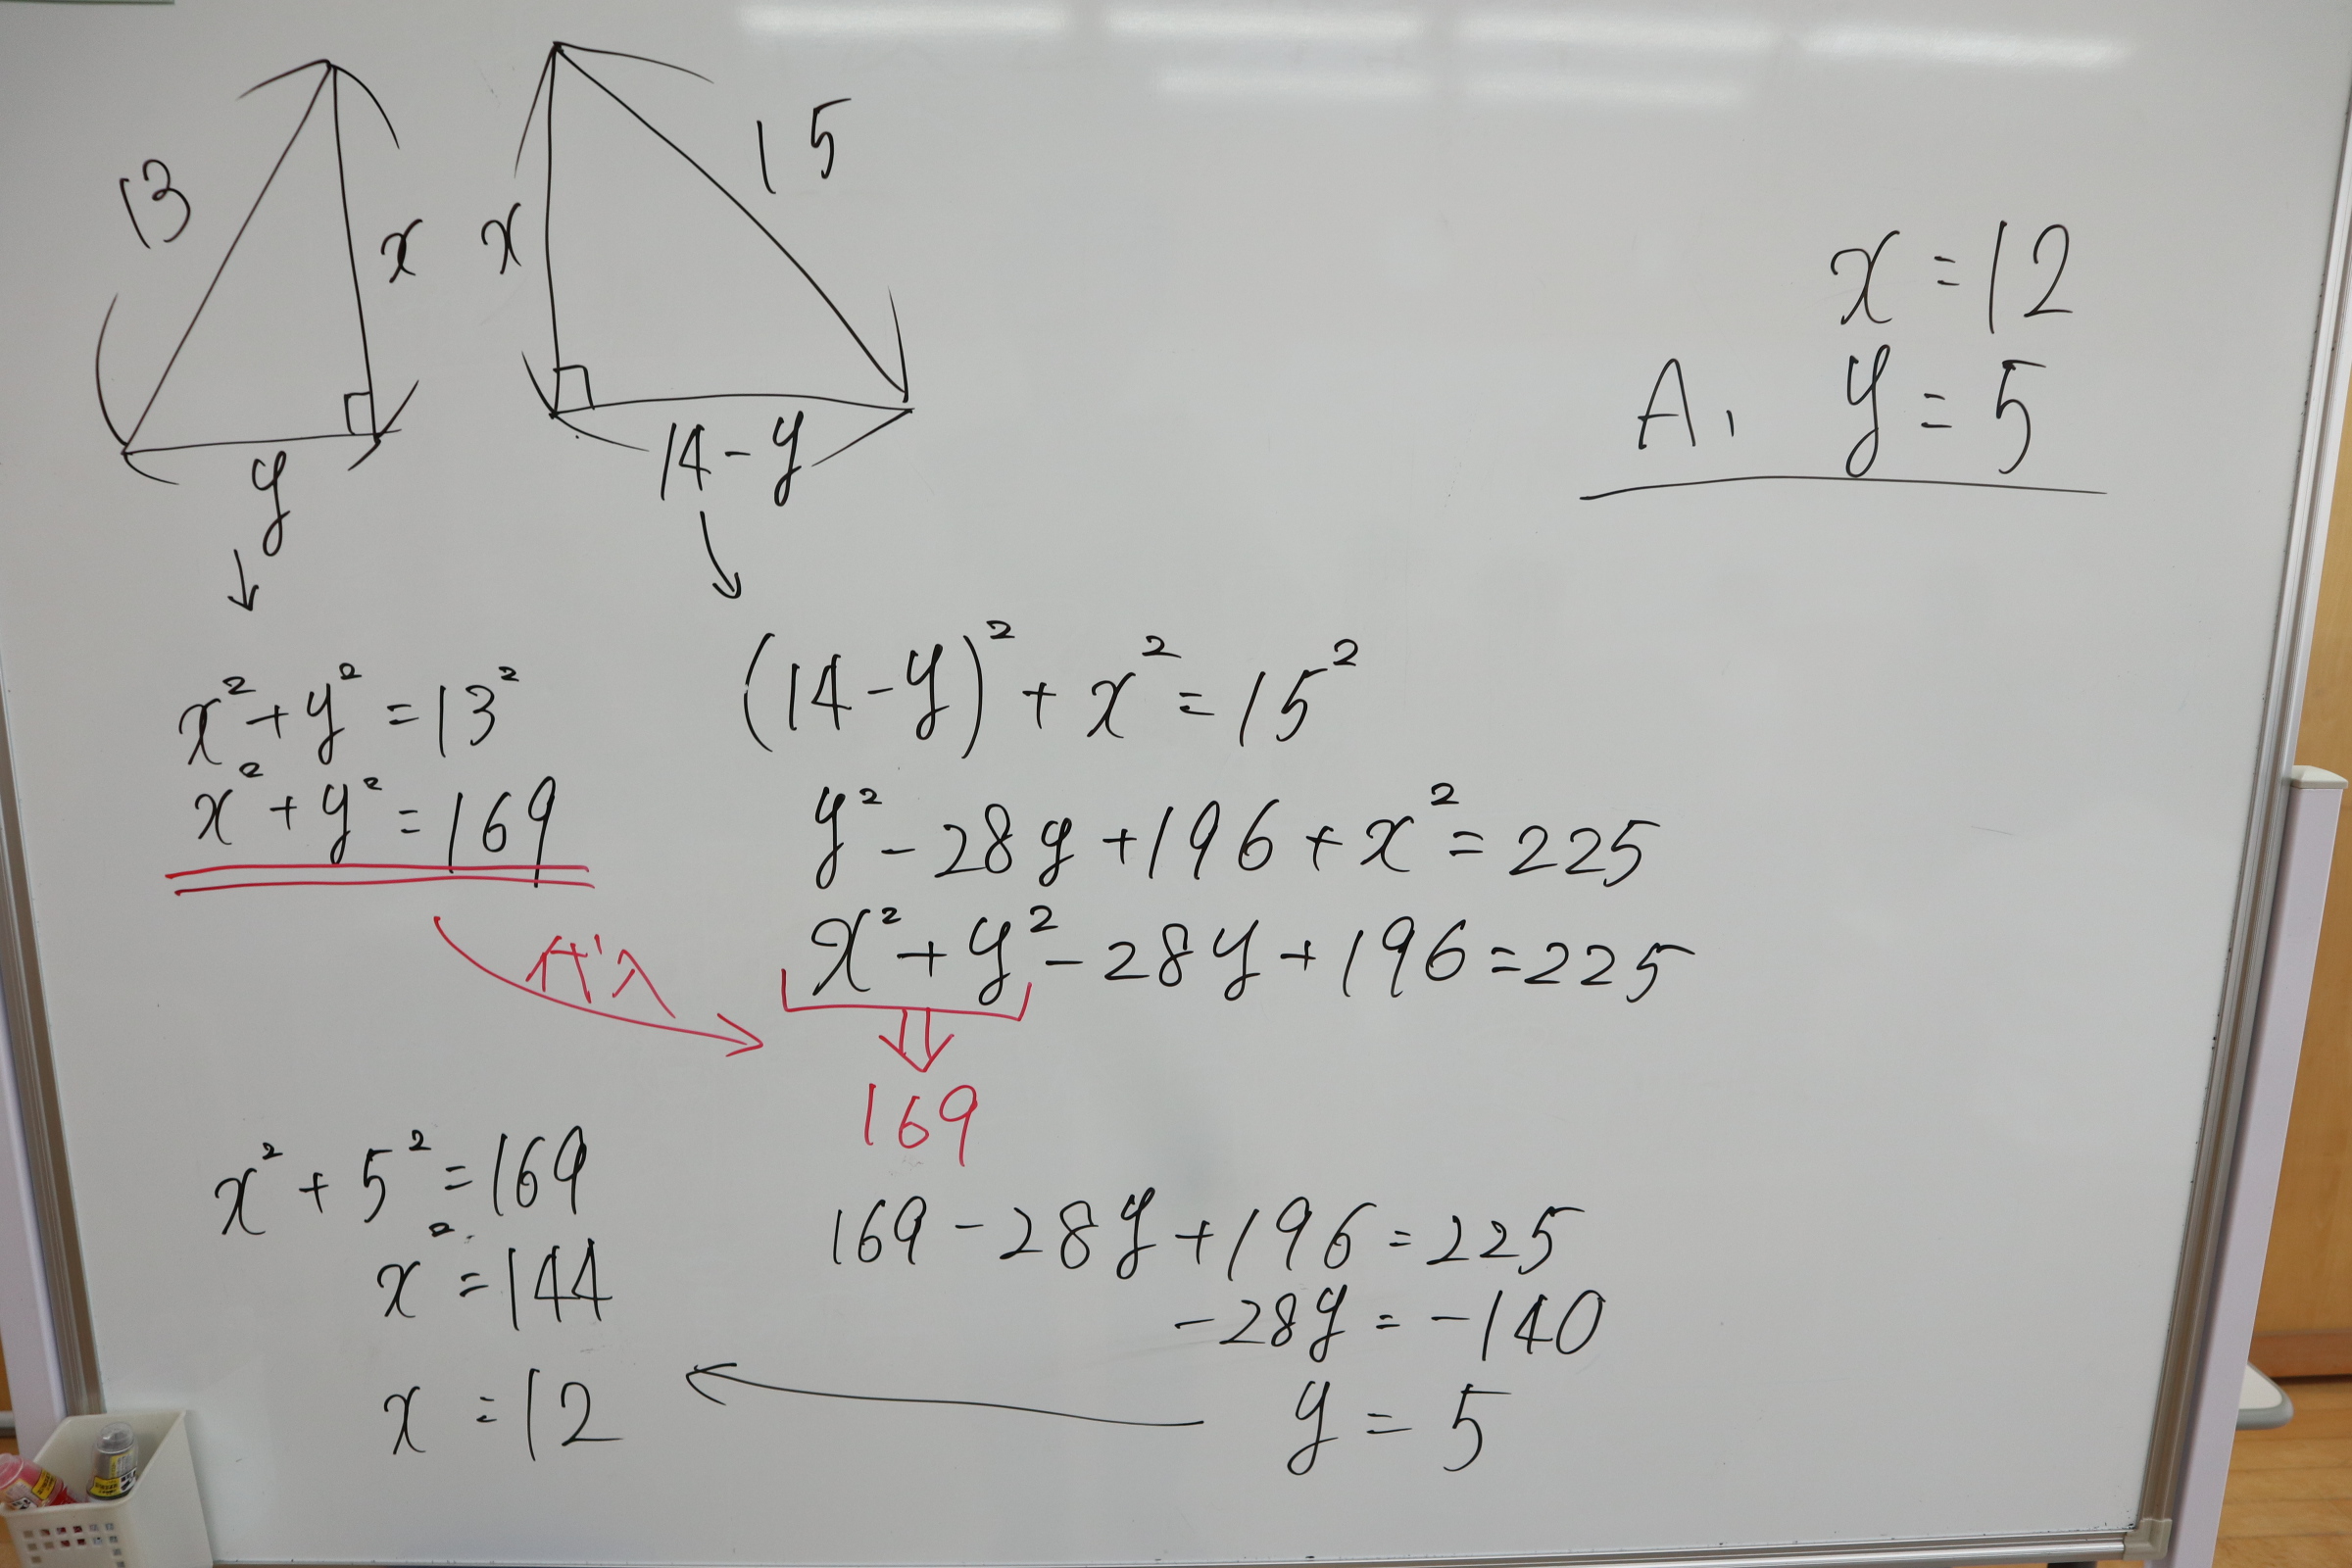 13
x
y
x
15
14-y
x²+y²=13²
x²+y²=169
代入
(14-y)²+x²=15²
y²-28y+196+x²=225
x²+y²-28y+196=225
169
169-28y+196=225
-28y=-140
y=5
x²+5²=169
x²=144
x=12
x=12
A, y=5